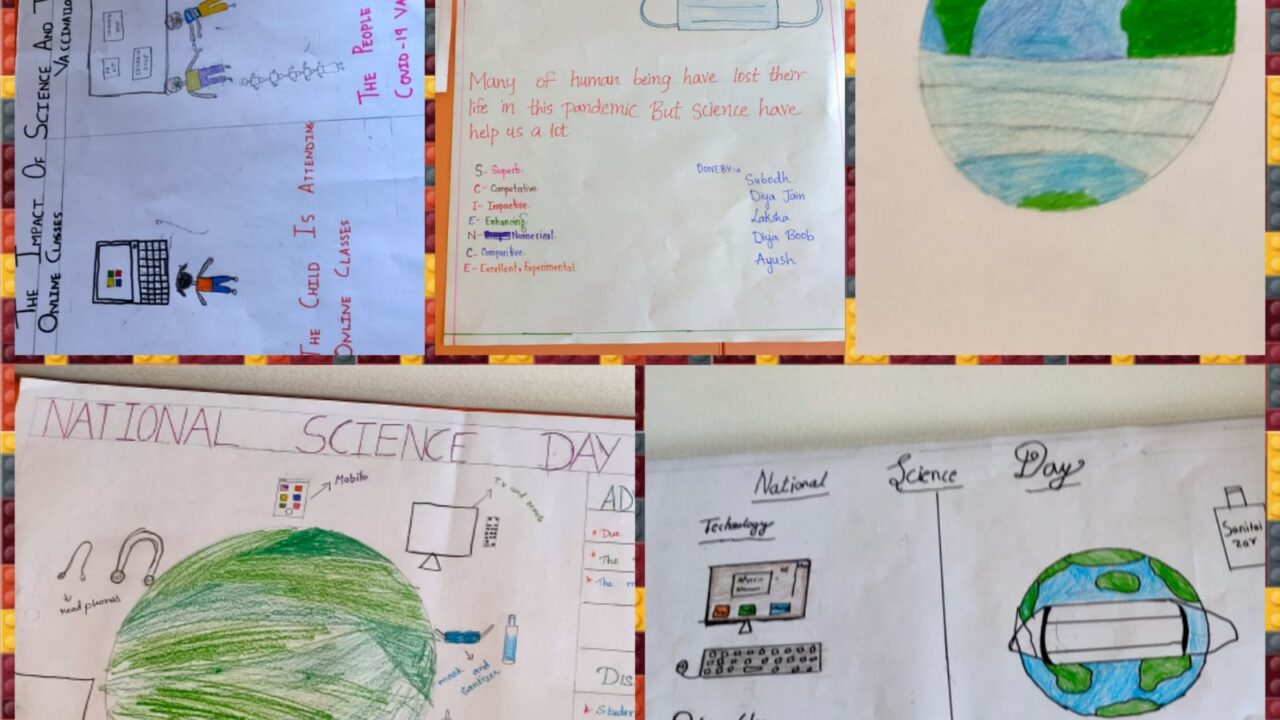 THE IMPACT OF SCIENCE AND T
ONLINE CLASSES
VACCINATIO
THE PEOPLE
COVID-19 VA
THE CHILD IS ATTENDING
ONLINE CLASSES
Many of human being have lost their
life in this pandemic But science have
help us a lot.
S- Superb.
C- Computative
I- Impactive.
E- Enhancing
N- Numerical.
C- Compuitive.
E- Excellent, Experimental.
DONE BY:-
Subodh
Diya Jain
Laksha
Diya Boob
Ayush
NATIONAL SCIENCE DAY
Mobile
Tv and remote
head phones
mask and
Sanitizer
AD
* Due
* The
* The m
DIS
* Studen
National Science Day
Technology
Sanitai
zar